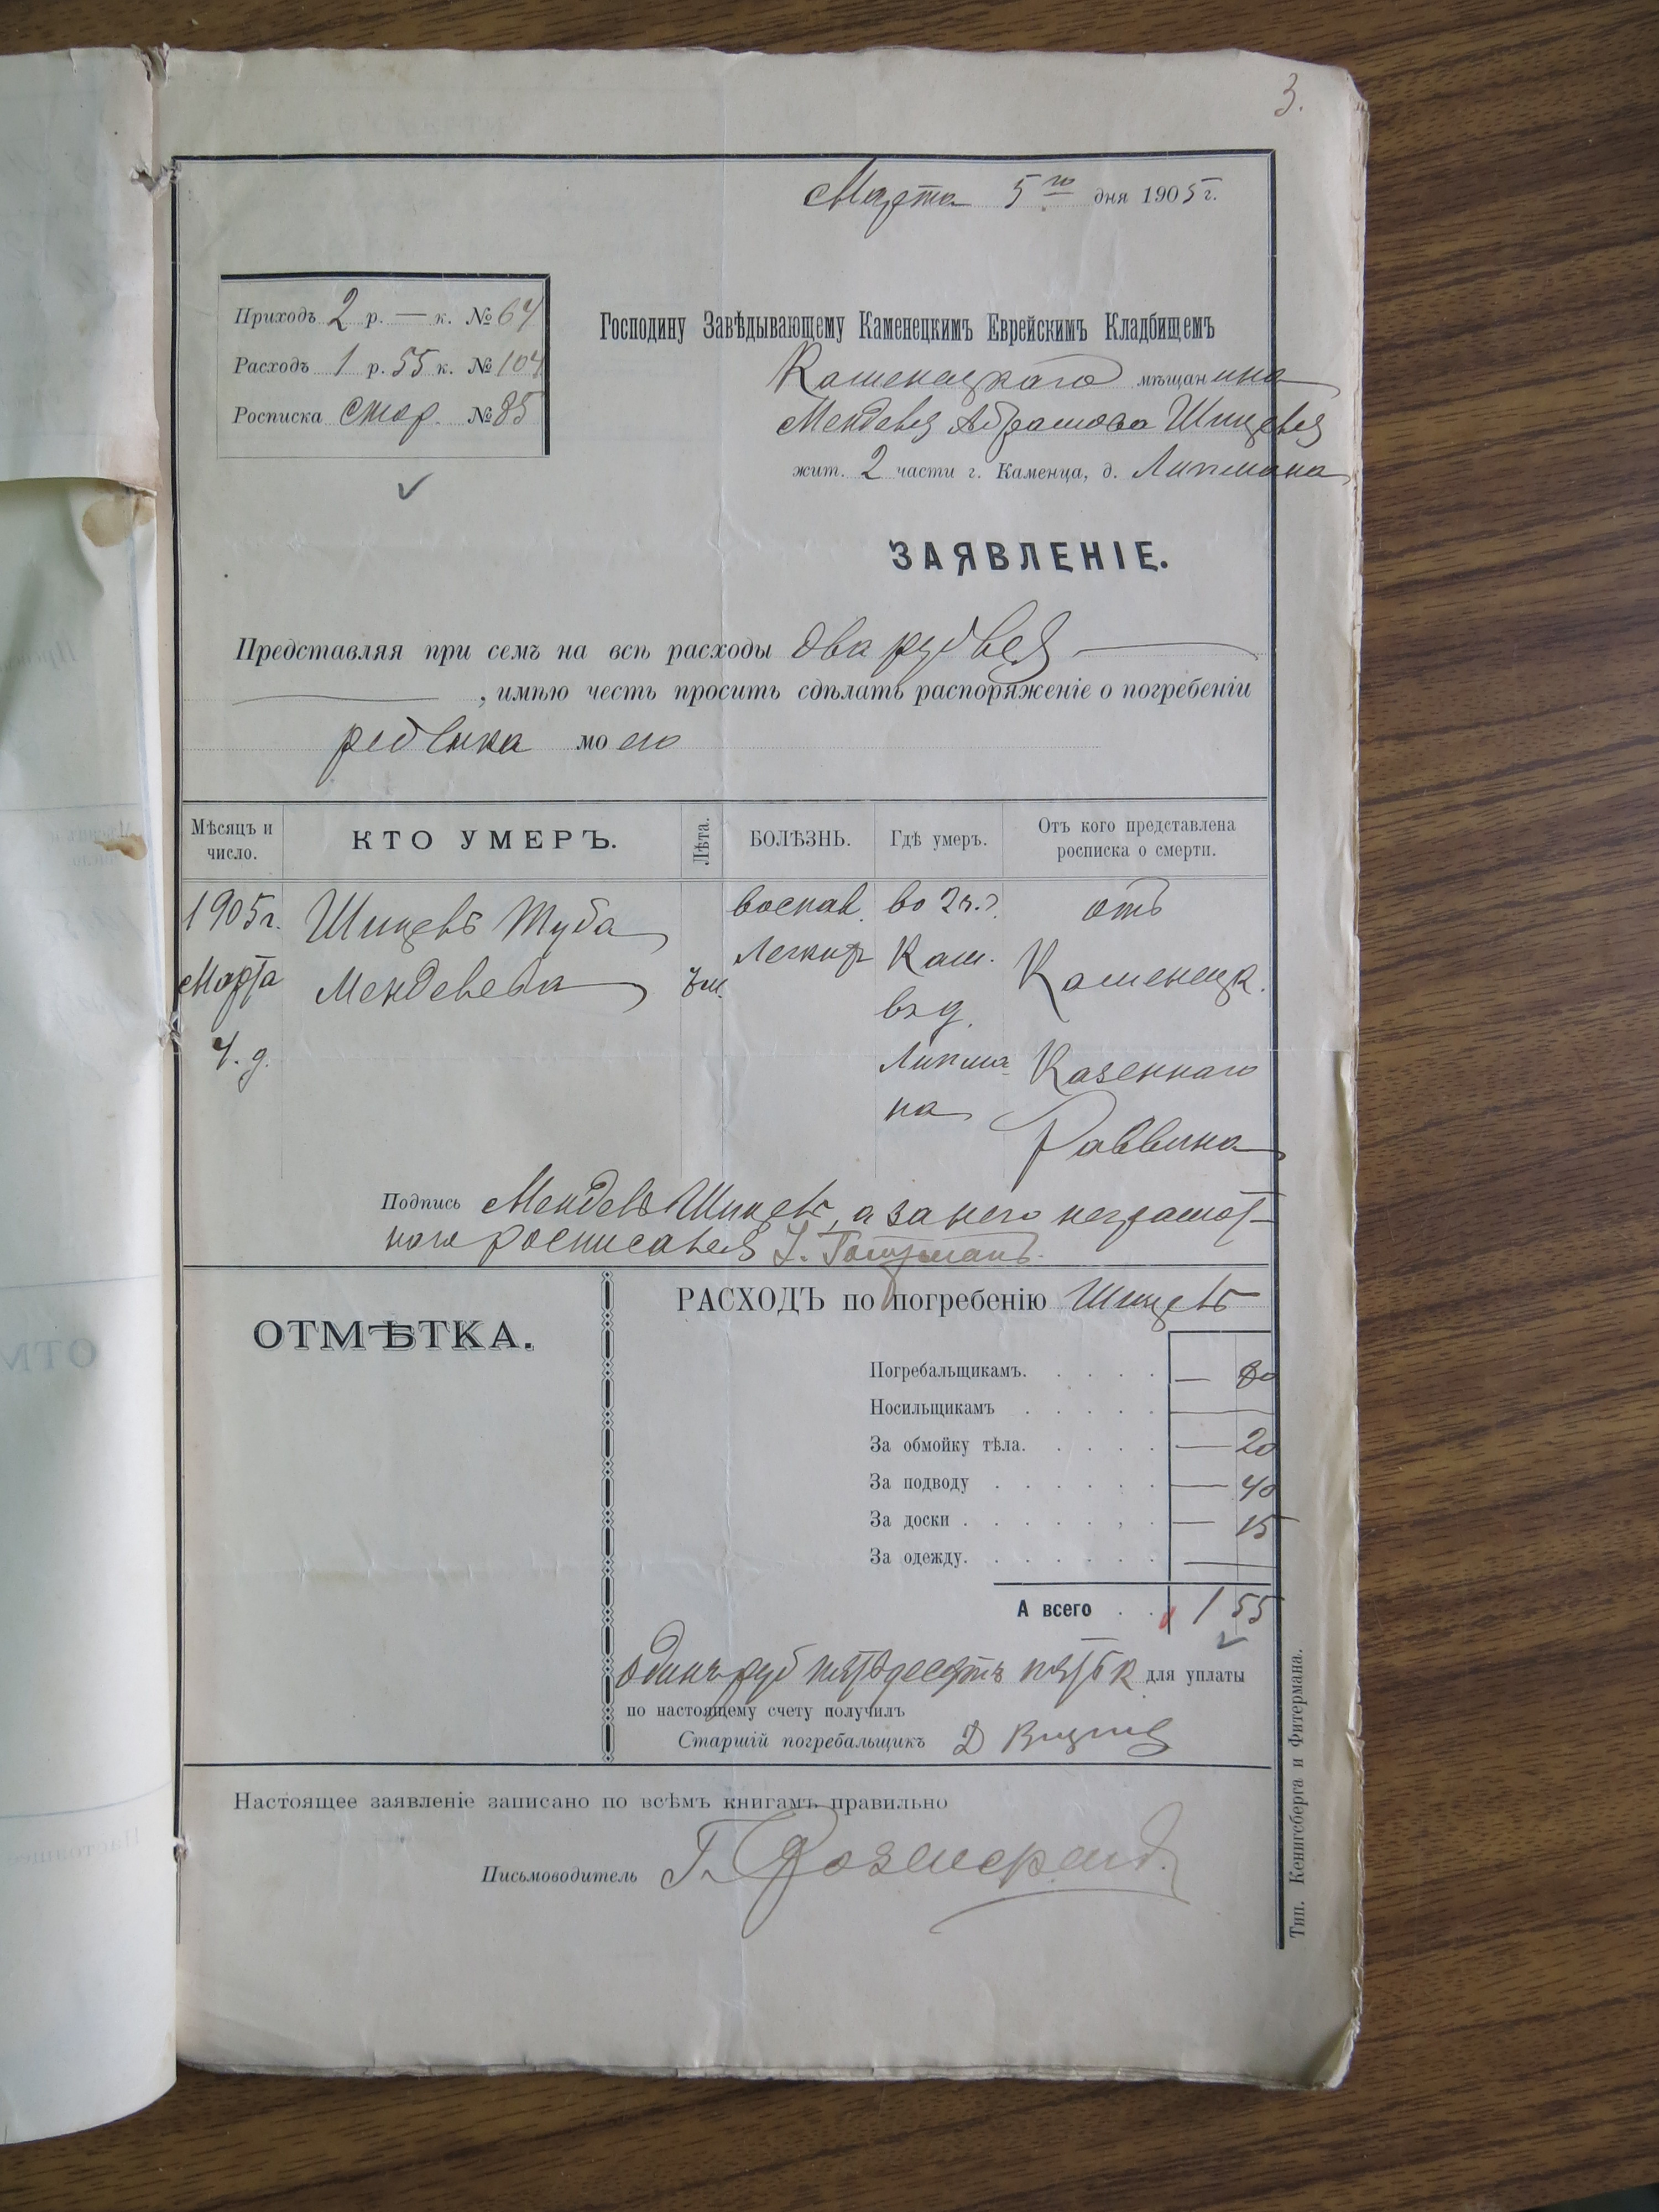 3.
Марта 5го дня 1905 г.
Приходъ 2 р. — к. № 64
Расходъ 1 р. 55 к. № 104
Росписка стор. № 85
Господину Завѣдывающему Каменецкимъ Еврейскимъ Кладбищемъ
Каменецкаго мѣщанина
Менделя Абрамова
жит. 2 части г. Каменца, д. Липмана
ЗАЯВЛЕНІЕ.
Представляя при семъ на всѣ расходы два рубля —
— , имѣю честь просить сдѣлать распоряженіе о погребеніи
ребенка моего
Мѣсяцъ и число.
КТО УМЕРЪ.
Лѣта.
БОЛѢЗНЬ.
Гдѣ умеръ.
Отъ кого представлена росписка о смерти.
1905 г. Марта 4. д.
Туба Менделева
воспал. легкихъ
во 2 ч. г. Кам. въ д. Липмана
отъ Каменецк. Казеннаго Раввина
Подпись Мендель, а за него неграмот-
наго росписался
ОТМѢТКА.
РАСХОДЪ по погребенію
Погребальщикамъ. — 80
Носильщикамъ —
За обмойку тѣла. — 20
За подводу — 40
За доски — 15
За одежду. —
А всего 1 55
Одинъ руб пятьдесятъ пять к для уплаты
по настоящему счету получилъ
Старшій погребальщикъ Д
Настоящее заявленіе записано по всѣмъ книгамъ правильно
Письмоводитель Г.
Тип. Кенигсберга и Фитермана.